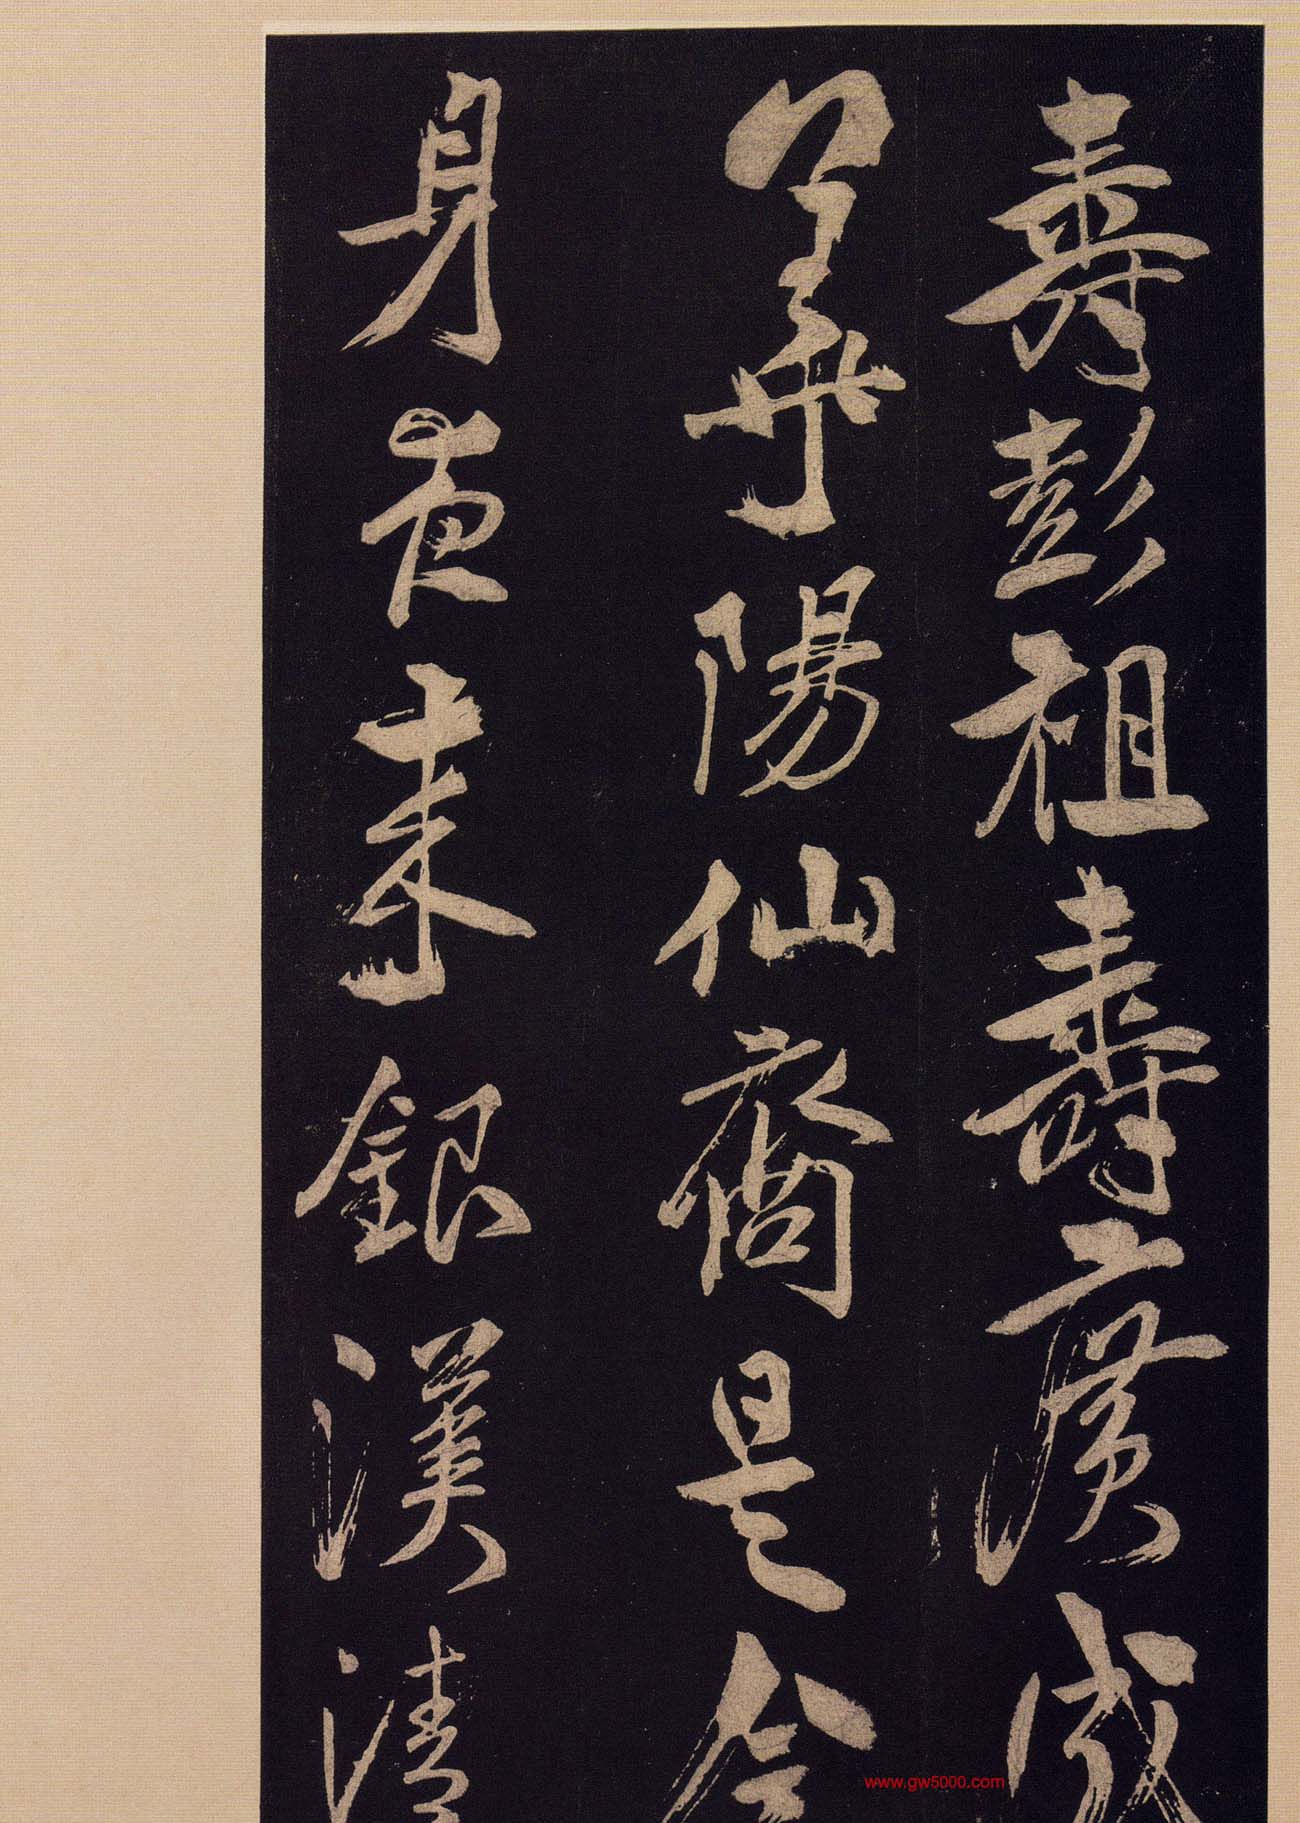 壽彭祖壽廣成
公華陽仙裔是今
身夜來銀漢清
www.gw5000.com